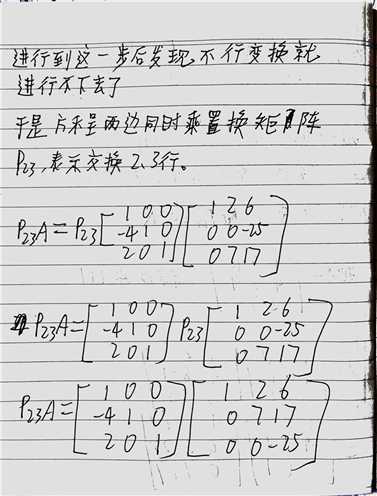 进行到这一步后发现,不行变换就
进行不下去了
于是方程两边同时乘置换矩阵
P₂₃,表示交换2,3行。
P₂₃A=P₂₃[1 0 0; -4 1 0; 2 0 1][1 2 6; 0 0 -25; 0 7 17]
P₂₃A=[1 0 0; -4 1 0; 2 0 1]P₂₃[1 2 6; 0 0 -25; 0 7 17]
P₂₃A=[1 0 0; -4 1 0; 2 0 1][1 2 6; 0 7 17; 0 0 -25]